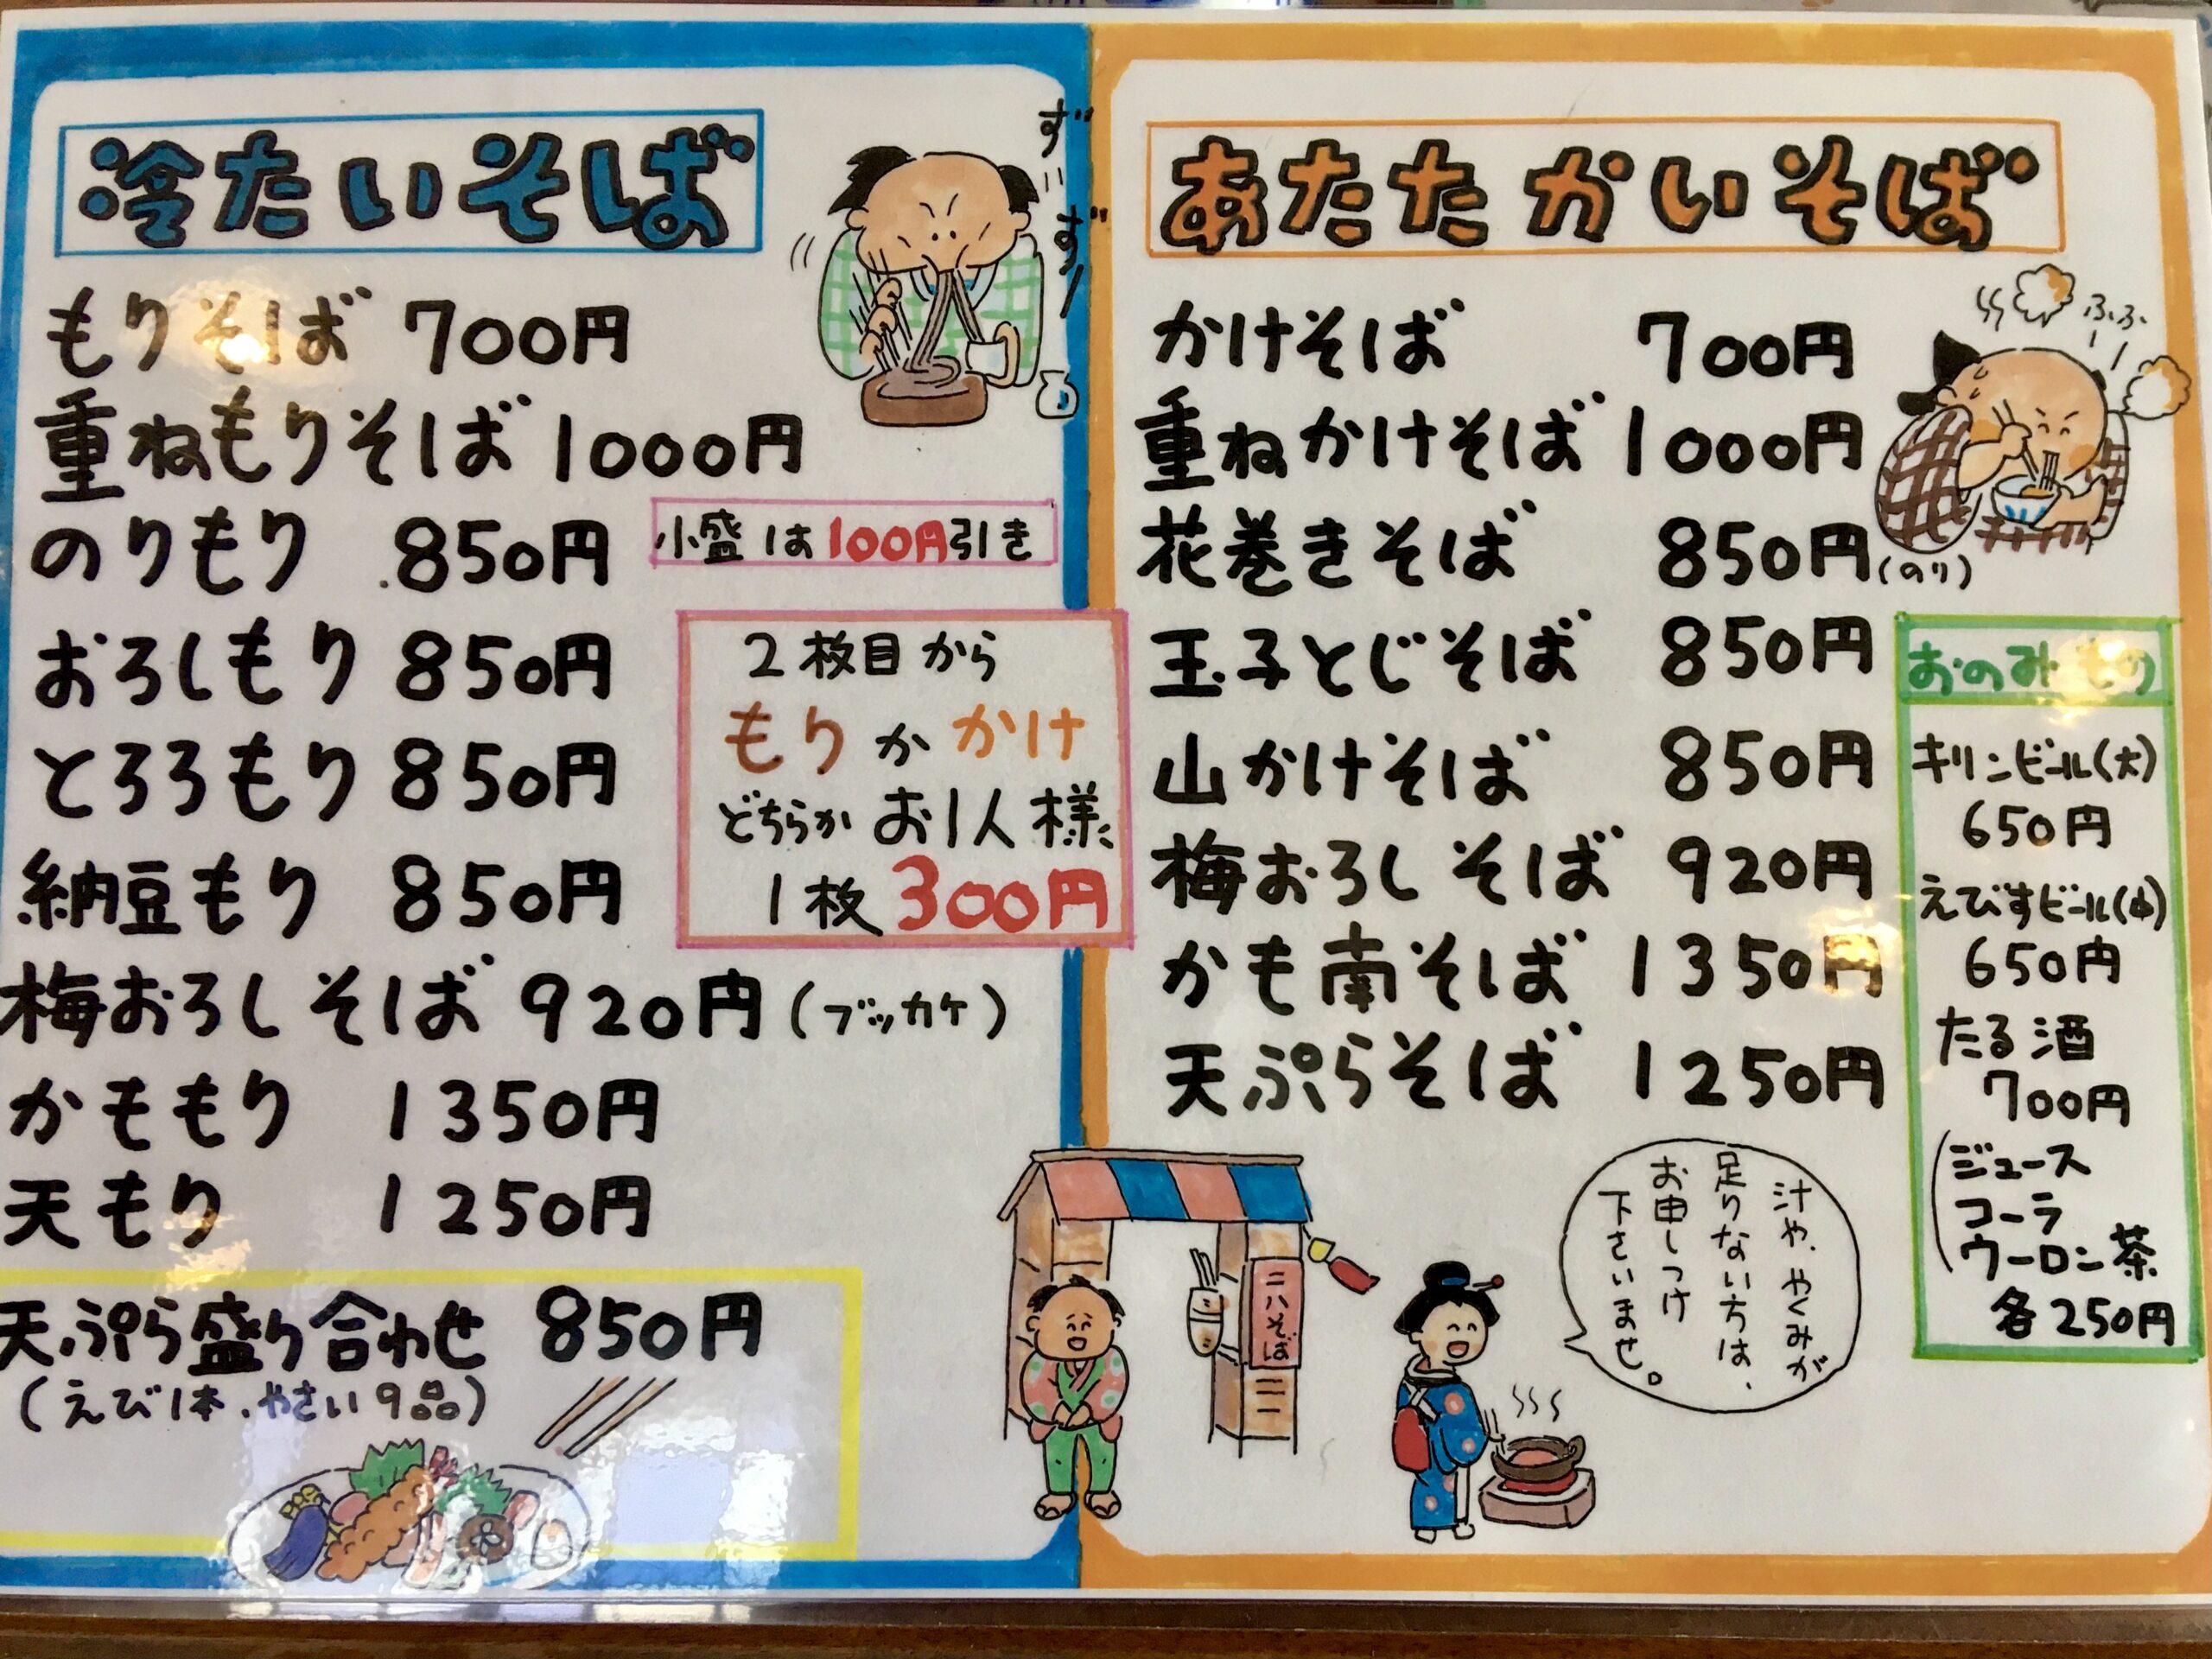 冷たいそば
ず〜ず〜
もりそば 700円
重ねもりそば 1000円
のりもり 850円
小盛は100円引き
おろしもり 850円
とろろもり 850円
納豆もり 850円
2枚目から
もりかかけ
どちらかお1人様
1枚300円
梅おろしそば 920円(ブッカケ)
かももり 1350円
天もり 1250円
天ぷら盛り合わせ 850円
(えび1本、やさい9品)
あたたかいそば
ふふふ
かけそば 700円
重ねかけそば 1000円
花巻きそば 850円(のり)
玉子とじそば 850円
山かけそば 850円
梅おろしそば 920円
かも南そば 1350円
天ぷらそば 1250円
おのみもの
キリンビール(大)
650円
えびすビール(中)
650円
たる酒
700円
ジュース
コーラ
ウーロン茶
各250円
汁や、やくみが
足りない方は、
お申しつけ
下さいませ。
二八そば